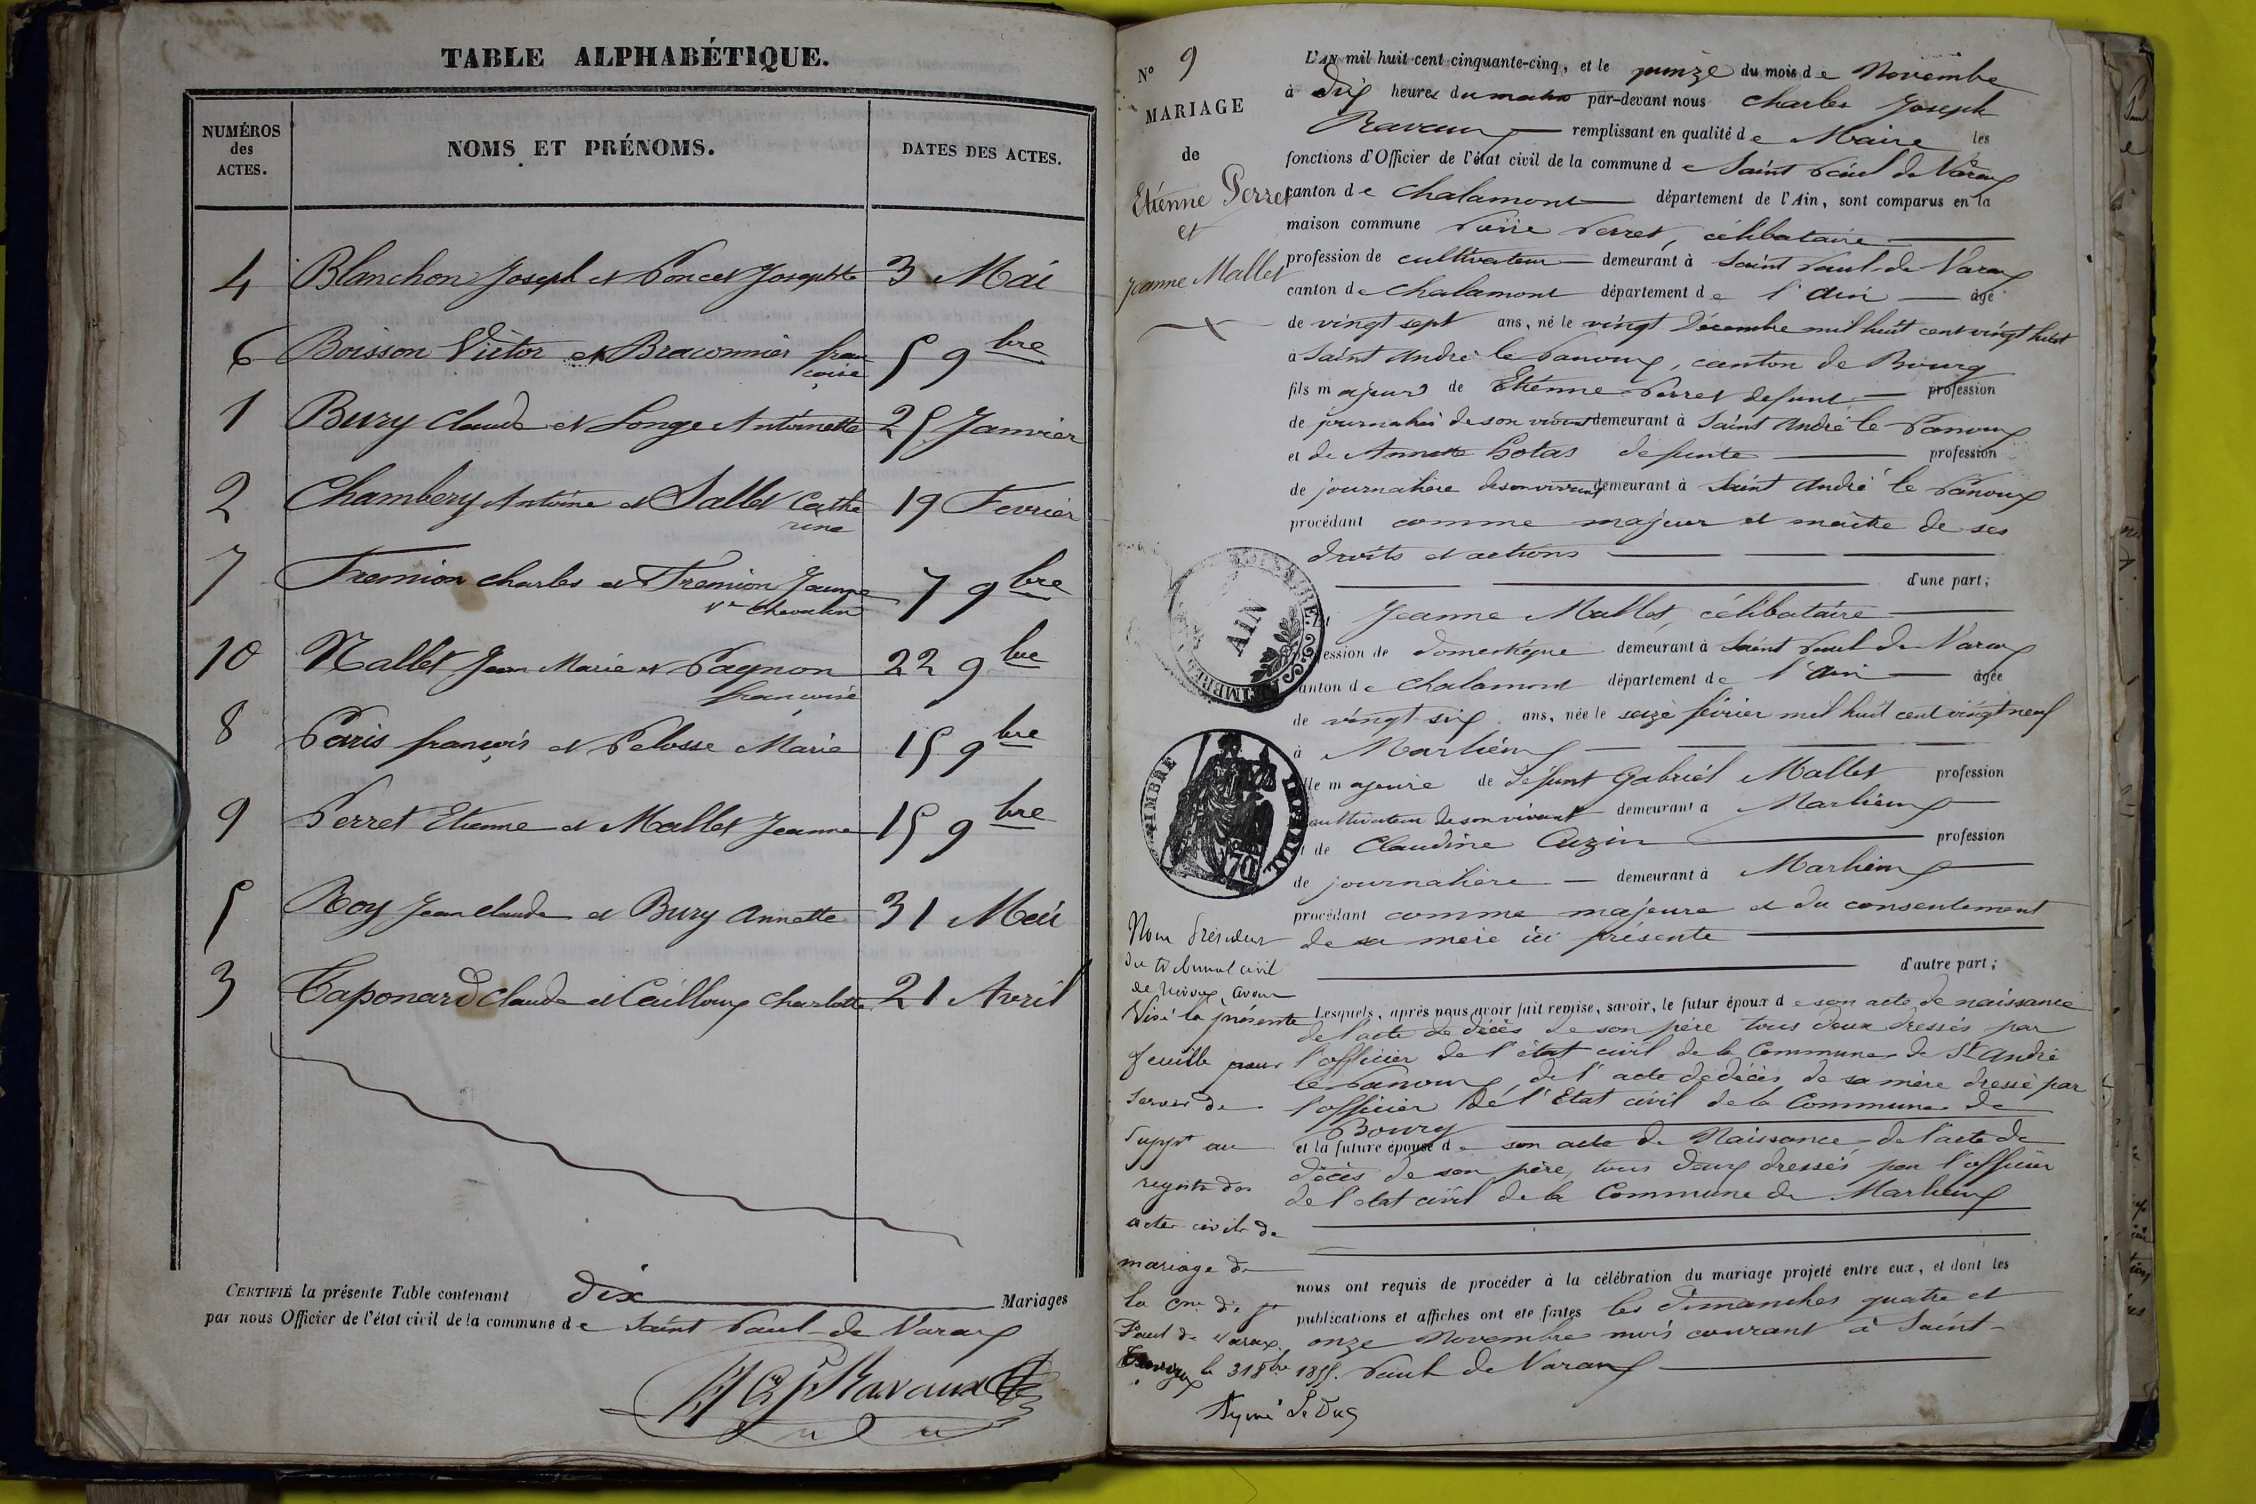 TABLE ALPHABÉTIQUE.
NUMÉROS des ACTES.
NOMS ET PRÉNOMS.
DATES DES ACTES.
4 Blanchon Joseph et Poncet Josephte 3 Mai
6 Boisson Victor et Braconnier fran
çoise 5 9bre
1 Bury Claude et Longe Antoinette 25 Janvier
2 Chambery Antoine et Sallet Cathe
rine 19 Fevrier
7 Fremion charles et Fremion Jeanne
Ve Chevalier 7 9bre
10 Mallet Jean Marie et Pagnon
françoise 22 9bre
8 Paris françois et Pelosse Marie 15 9bre
9 Perret Etienne et Mallet Jeanne 15 9bre
5 Roy Jean Claude et Bury Annette 31 Mai
3 Taponard Claude et Cailloux Charlotte 21 Avril
CERTIFIÉ la présente Table contenant dix Mariages
par nous Officier de l'état civil de la commune de Saint Paul de Varax
Ravaux
No 9
MARIAGE
de
Etienne Perret
et
Jeanne Mallet
L'AN mil huit cent cinquante-cinq, et le quinze du mois de Novembre
à Dix heures du matin par-devant nous Charles Joseph
Ravaux remplissant en qualité de Maire les
fonctions d'Officier de l'état civil de la commune de Saint Paul de Varax
canton de Chalamont département de l'Ain, sont comparus en la
maison commune Perret, célibataire
profession de cultivateur demeurant à Saint Paul de Varax
canton de Chalamont département de l'Ain âgé
de vingt sept ans, né le vingt Décembre mil huit cent vingt huit
à Saint André le Panoux, canton de Bourg
fils majeur de Etienne Perret defunt profession
de journalier de son vivant demeurant à Saint André le Panoux
et de Annette defunte profession
de journalière de son vivant demeurant à Saint André le Panoux
procédant comme majeur et maitre de ses
droits et actions
d'une part;
Jeanne Mallet, célibataire
ession de domestique demeurant à Saint Paul de Varax
anton de Chalamont département de l'Ain âgée
de vingt six ans, née le seize février mil huit cent vingt neuf
à Marlieux
lle majeure de defunt Gabriel Mallet profession
cultivateur de son vivant demeurant à Marlieux
de Claudine Cuzin profession
de journalière demeurant à Marlieux
procédant comme majeure et du consentement
de sa mère ici présente
d'autre part;
Lesquels, après nous avoir fait remise, savoir, le futur époux de son acte de naissance
de l'acte de décès de son père tous deux dressés par
l'officier de l'état civil de la Commune de St André
le Panoux, de l'acte de décès de sa mère dressé par
l'officier de l'Etat civil de la Commune de
Bourg
et la future épouse de son acte de Naissance de l'acte de
décès de son père, tous deux dressés par l'officier
de l'état civil de la Commune de Marlieux
nous ont requis de procéder à la célébration du mariage projeté entre eux, et dont les
publications et affiches ont été faites les dimanches quatre et
onze Novembre mois courant à Saint
Paul de Varax
AIN
TIMBRE IMPERIAL
70
Nous Président
du tribunal civil
de Trévoux, avons
Visé la présente
feuille pour
servir de
suppt au
registre des
actes civils de
mariage de
la cne de St
Paul de Varax.
Trévoux le 31 8bre 1855.